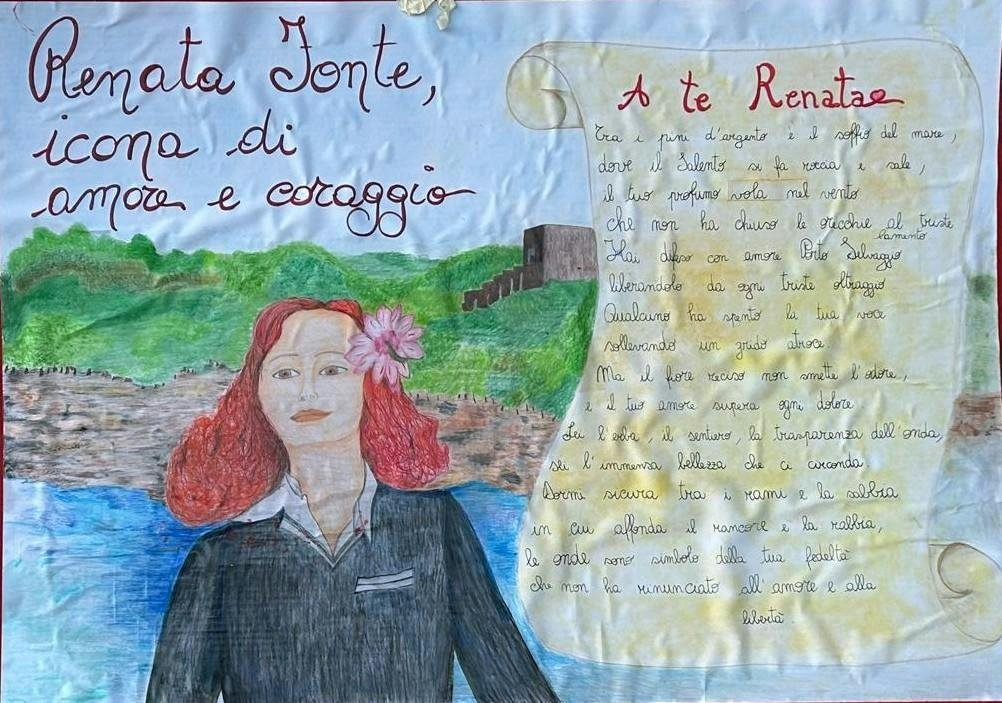 Renata Fonte,
icona di
amore e coraggio
A te Renata
Tra i pini d'argento è il soffio del mare,
dove il Salento si fa roccia e sale,
il tuo profumo vola nel vento
che non ha chiuso le orecchie al triste
lamento
Hai difeso con amore Porto Selvaggio
liberandolo da ogni triste oltraggio
Qualcuno ha spento la tua voce
sollevando un grido atroce.
Ma il fiore reciso non smette l'odore,
e il tuo amore supera ogni dolore.
Sei l'erba, il sentiero, la trasparenza dell'onda,
sei l'immensa bellezza che ci circonda
Dormi sicura tra i rami e la sabbia
in cui affonda il rancore e la rabbia,
le onde sono simbolo della tua fedeltà
che non ha rinunciato all'amore e alla
libertà.